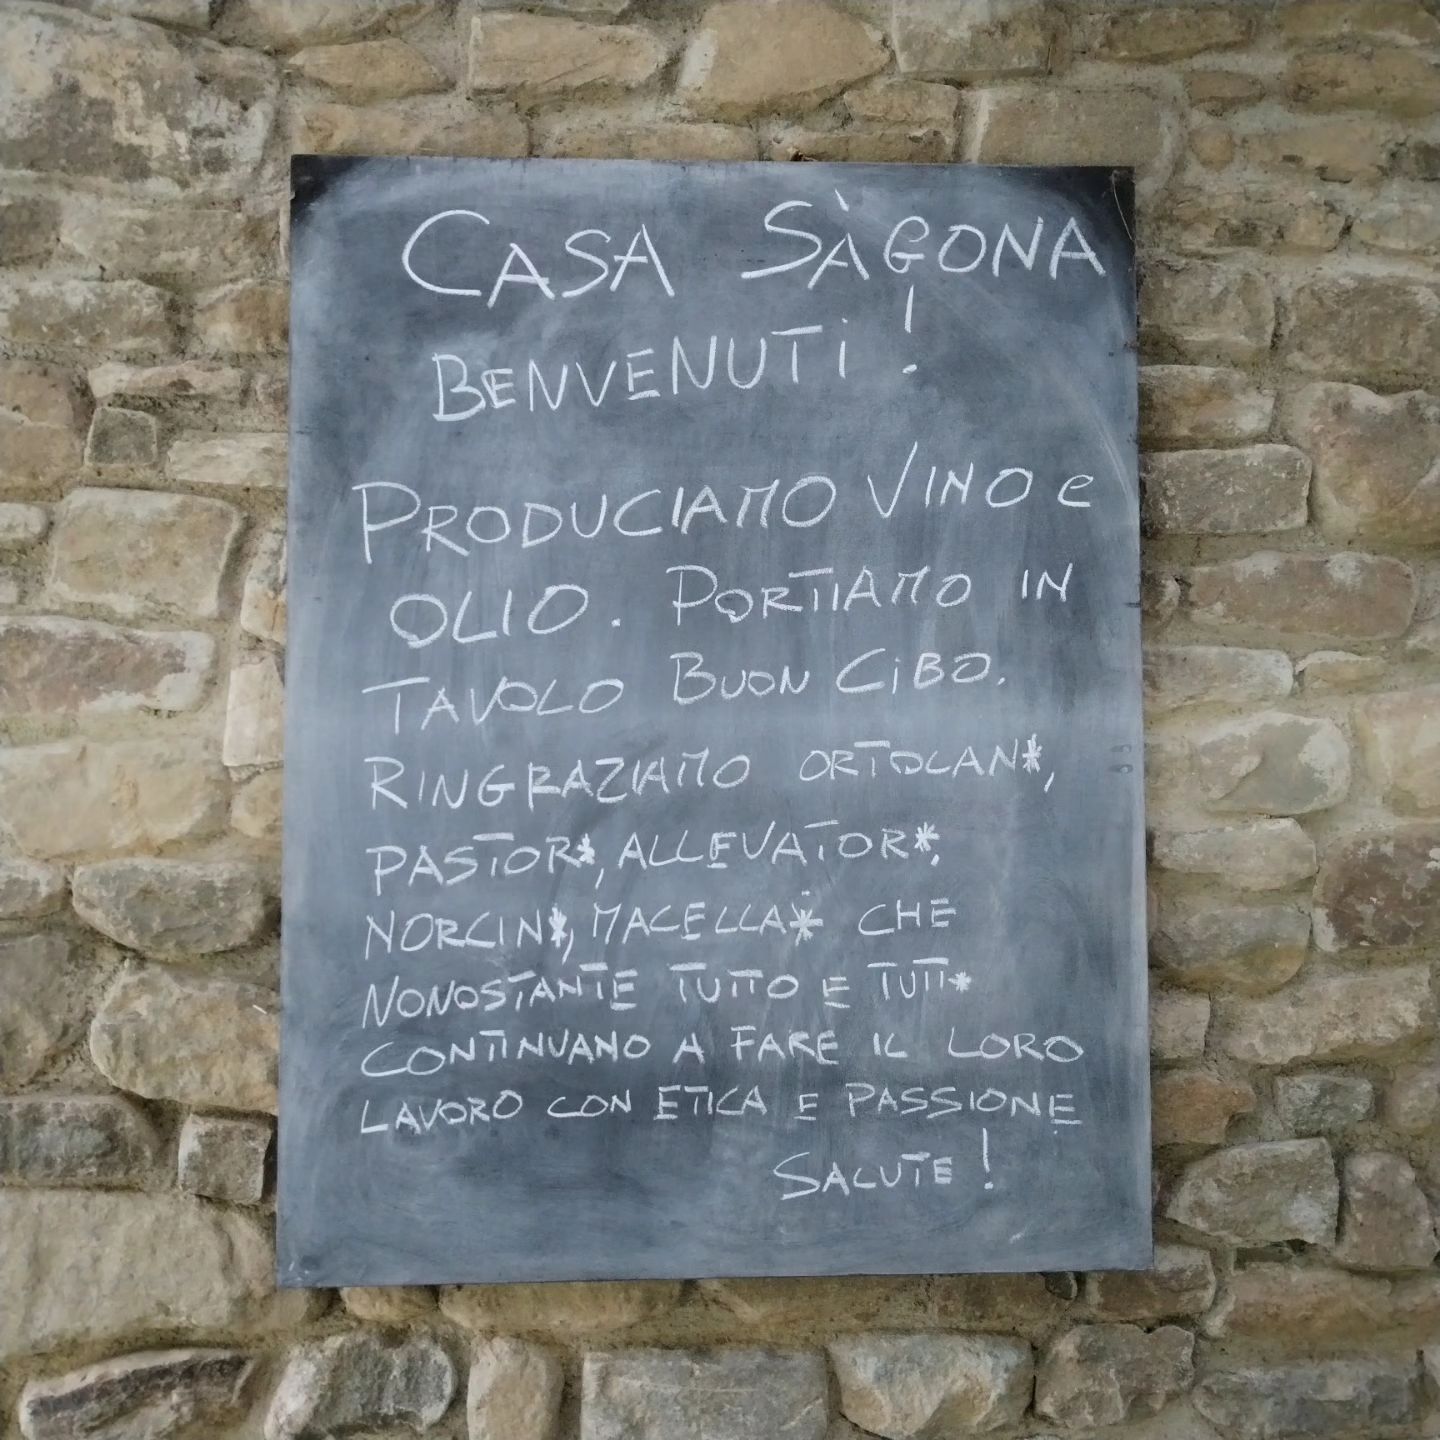 CASA SÀGONA
BENVENUTI!
PRODUCIAMO VINO e
OLIO. PORTIAMO IN
TAVOLO BUON CIBO.
RINGRAZIAMO ORTOLAN*,
PASTOR*, ALLEVATOR*,
NORCIN*, MACELLA* CHE
NONOSTANTE TUTTO E TUTT*
CONTINUANO A FARE IL LORO
LAVORO CON ETICA E PASSIONE
SALUTE!